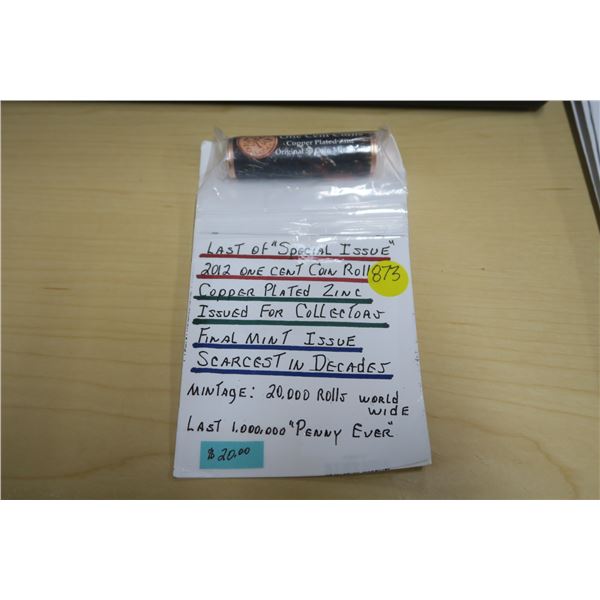 One Cent Coins
Copper Plated Zinc
Original
LAST OF "SPECIAL ISSUE"
2012 ONE CENT COIN ROLL
873
COPPER PLATED ZINC
ISSUED FOR COLLECTORS
FINAL MINT ISSUE
SCARCEST IN DECADES
MINTAGE: 20,000 ROLLS WORLD
WIDE
LAST 1,000,000 "PENNY EVER"
$20.00